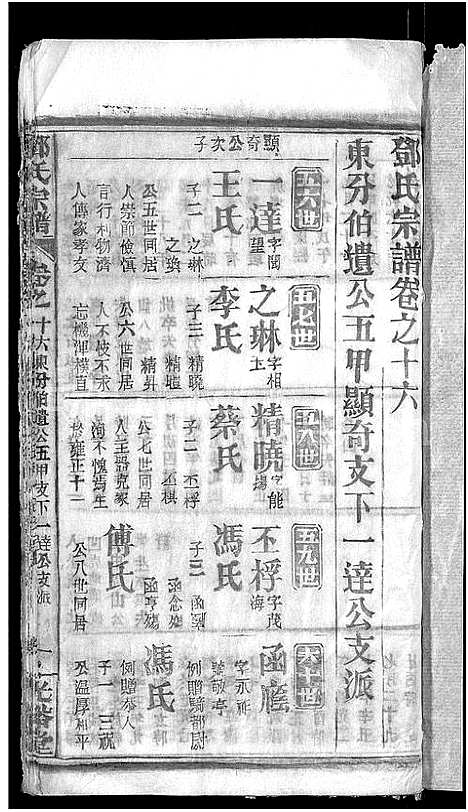 鄧氏宗譜卷之十六
東分伯遺公五甲顯奇支下一達公支派
顯奇公次子
五六世
一達字聞望
王氏
子二 之琳
之
公五世同居
人崇節儉慎
言行利物濟
人傳家孝友
五七世
之琳字相玉
李氏
子三 精曉
精
精昇
公六世同居
人不忮不求
忘機渾樸直
五八世
精曉字能
蔡氏
子二 丕桴
丕棋
公七世同居
人主器克家
洵不愧
於雍正十二
五九世
丕桴字茂海
馮氏
傅氏
子三
函念殤
函亨殤
公八世同居
六十世
函
字永
例贈
馮氏
例贈恭人
子一 三祝
公溫厚和平
鄧氏宗譜
卷之十六東分伯遺公五甲支下一達公支派